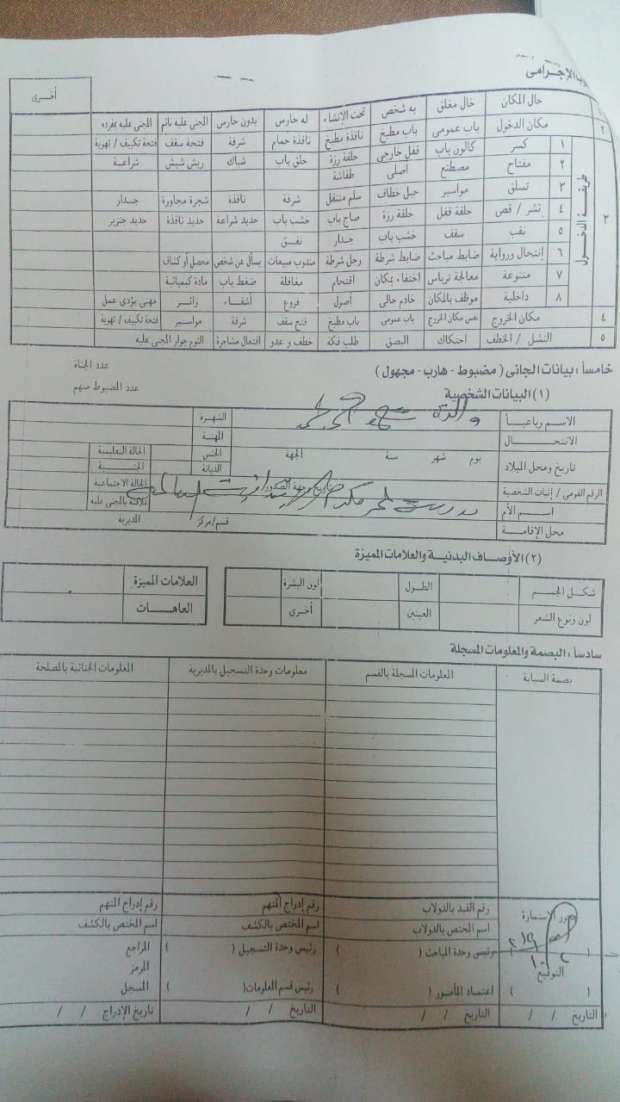 الإجرامى
١ حال المكان خال مغلق به شخص تحت الانشاء له حارس بدون حارس المجنى عليه نائم المجنى عليه بمفرده أخرى
٢ مكان الدخول باب عمومى باب مطبخ نافذة مطبخ نافذة حمام شرفة فتحة سقف فتحة تكييف / تهوية
٣ طريقة الدخول
١ كسر كالون باب قفل خارجى حلقة رزة حلق باب شباك ريش شيش شراعة
٢ مفتاح مصطنع أصلى طفاشة
٣ تسلق مواسير حبل خطاف سلم متنقل شرفة نافذة شجرة مجاورة جدار
٤ نشر / قص حلقة قفل حلقة رزة صاج باب خشب باب حديد شراعة حديد نافذة حديد جنزير
٥ نقب سقف خشب باب جدار نفق
٦ إنتحال ورواية ضابط مباحث ضابط شرطة رجل شرطة مندوب مبيعات يسأل عن شخص محصل أو كشاف
٧ متنوعة معالجة ترباس اختفاء بمكان اقتحام مغافلة ضغط باب مادة كيميائية
٨ داخلية موظف بالمكان خادم حالى أصول فروع أشقاء زائر مهنى يؤدى عمل
٤ مكان الخروج نفس مكان الخروج باب عمومى باب مطبخ فتح سقف شرفة مواسير فتحة تكييف / تهوية
٥ النشل / الخطف احتكاك البصق طلب فكة خطف و عدو افتعال مشاجرة النوم جوار المجنى عليه
خامساً : بيانات الجانى ( مضبوط - هارب - مجهول ) عدد الجناة
(١) البيانات الشخصية عدد المضبوط منهم
الاسم رباعياً الشهرة
الانتحال المهنة
تاريخ ومحل الميلاد يوم شهر سنة الجهة الجنس الحالة التعليمية
الديانة الجنسية
الرقم القومى / إثبات الشخصية الحالة الاجتماعية
اسم الأم علاقته بالمجنى عليه
محل الإقامة قسم/مركز المديرية
(٢) الأوصاف البدنية والعلامات المميزة
شكل الجسم الطول لون البشرة العلامات المميزة
لون ونوع الشعر العينين أخرى العاهات
سادسا : البصمة والمعلومات المسجلة
بصمة السبابة المعلومات المسجلة بالقسم معلومات وحدة التسجيل بالمديرية المعلومات الجنائية بالمصلحة
الإستمارة رقم القيد بالدولاب رقم إدراج المتهم رقم إدراج المتهم
اسم المختص بالدولاب اسم المختص بالكشف اسم المختص بالكشف
( ) رئيس وحدة المباحث ( ) رئيس وحدة التسجيل ( ) المراجع
التوقيع الرمز
( ) اعتماد المأمور ( ) رئيس قسم المعلومات ( ) السجل
التاريخ / / التاريخ / / التاريخ / / تاريخ الإدراج / /